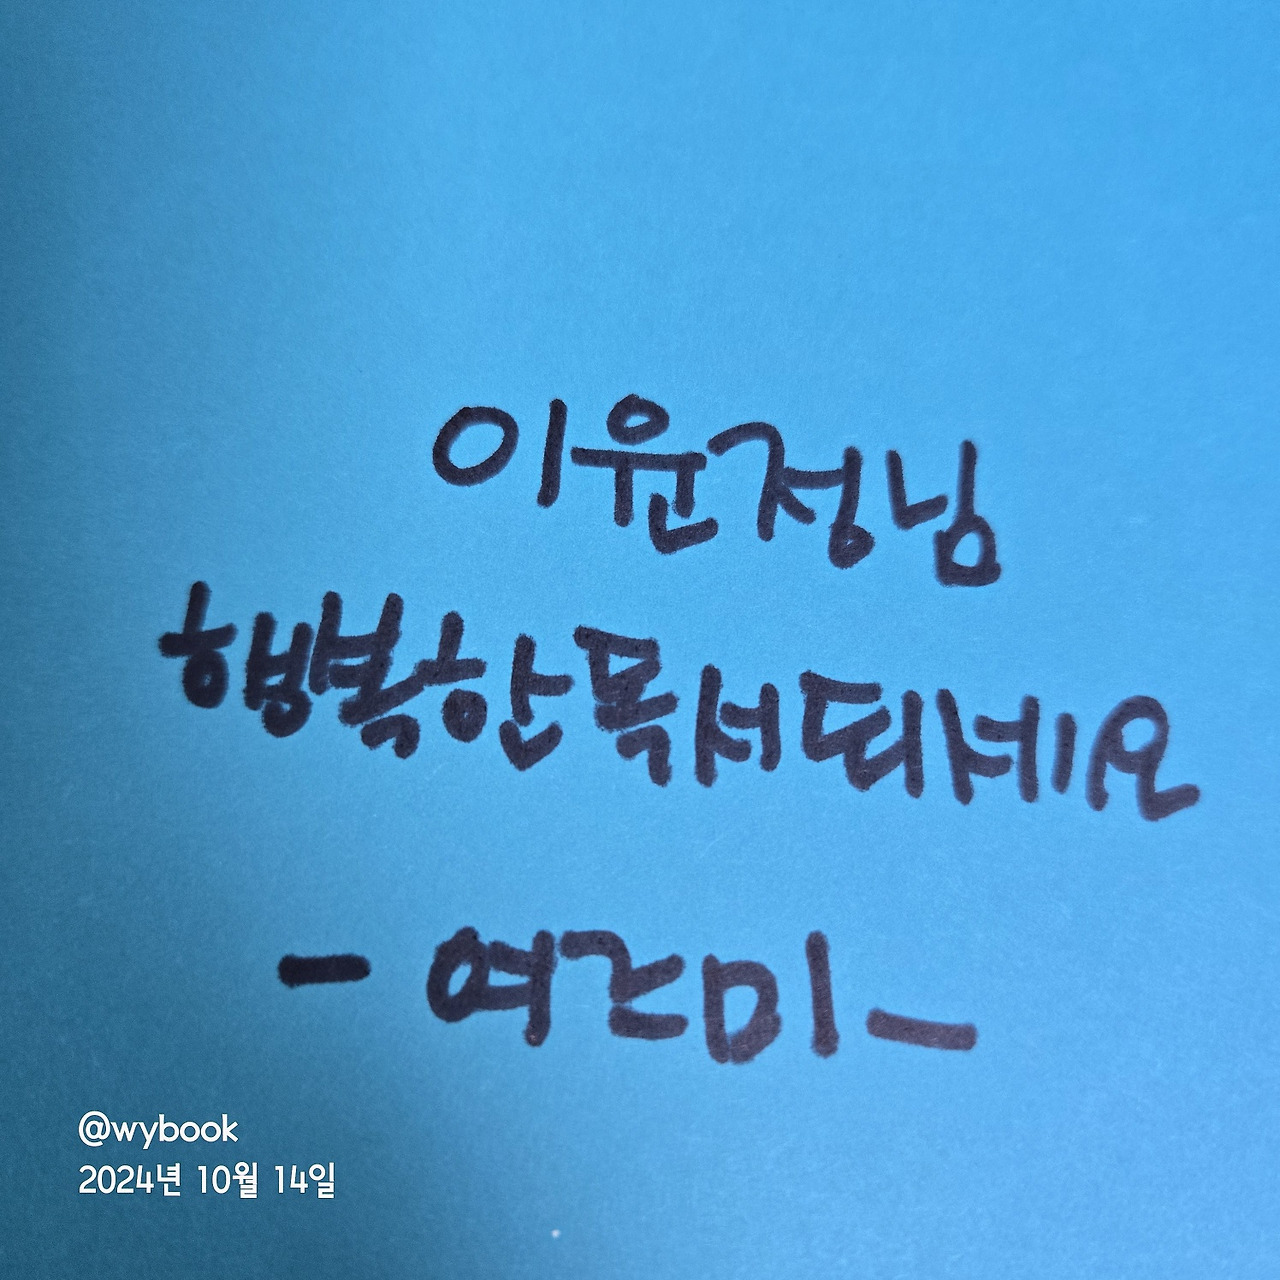 이윤정님
행복한 독서 되세요
- 여근미 -
@wybook
2024년 10월 14일